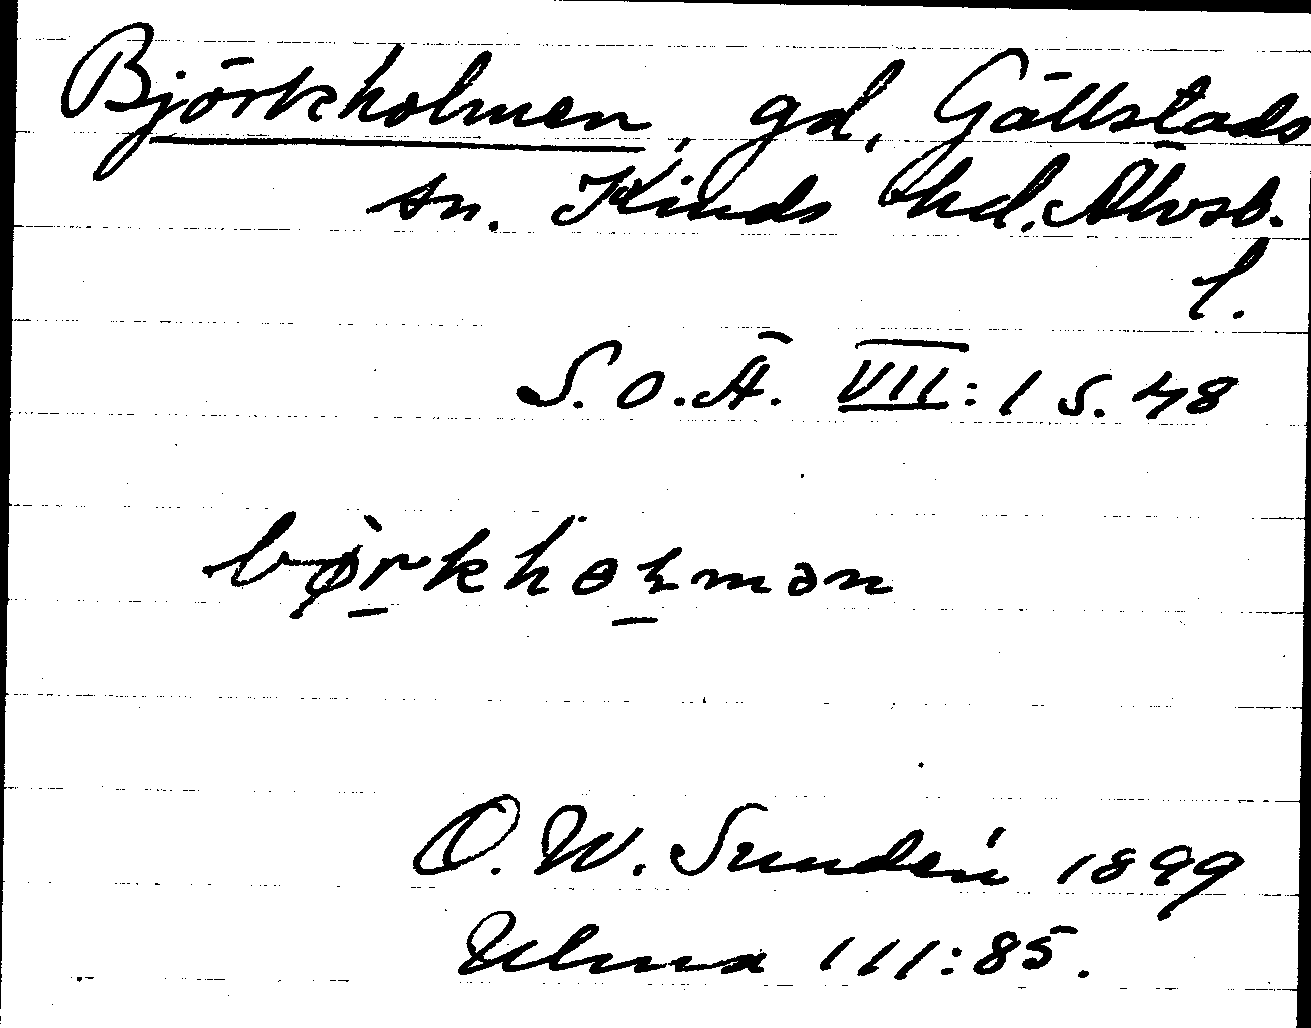 Björkholmen, gd, Gällstads
sn. Kinds hd. Älvsb.
l.
S.O.Ä. VII:1 s. 48
O.W. Sundén 1899
Ulma 111:85.